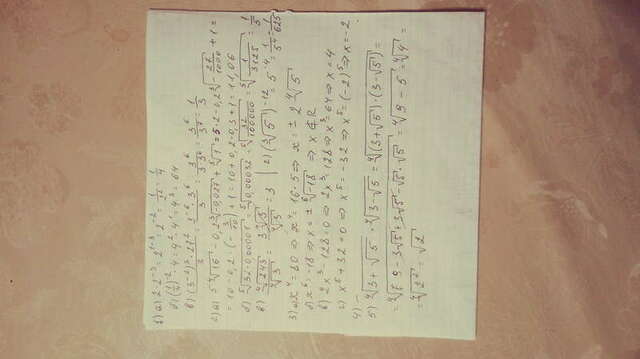 1) а) 2·2^-3 = 2^1-3 = 2^-2 = 1/2² = 1/4
б) (1/4)^-2·4 = 4²·4¹ = 4³ = 64
в) (3^-2)³·27²/3 = 3^-6·3^6/3 = 
2) а) 5 ⁴√16 - 0,2 ³√-0,027 + √1 = 5·2 - 0,2 ³√27/1000 + 1 =
= 10 - 0,2·(-3/10) + 1 = 10 + 0,2·0,3 + 1 = 11,06
б) ⁵√32·0,00001 = ⁵√0,00032 = ⁵√32/100000 = ⁵√1/3125 = 1/5
в) ⁴√243/⁴√3 = 3 ⁴√3/⁴√3 = 3 | г) (³√5)^-12 = 5^-4 = 1/5⁴ = 1/625
3) а) x⁴ = 80 ⇒ x⁴ = 16·5 ⇒ x = ± 2 ⁴√5
б) x⁶ = -18 ⇒ x = ± ⁶√-18 ⇒ x ∉ R
в) 2x³ - 128 = 0 ⇒ 2x³ = 128 ⇒ x³ = 64 ⇒ x = 4
г) x⁵ + 32 = 0 ⇒ x⁵ = -32 ⇒ x⁵ = (-2)⁵ ⇒ x = -2
4) —
5) ⁴√3 + √5 · ⁴√3 - √5 = ⁴√(3 + √5)·(3 - √5) =
9 - 3√5 + 3√5 - √5·√5 = ⁴√9 - 5 = ⁴√4 =
= ⁴√2² = √2